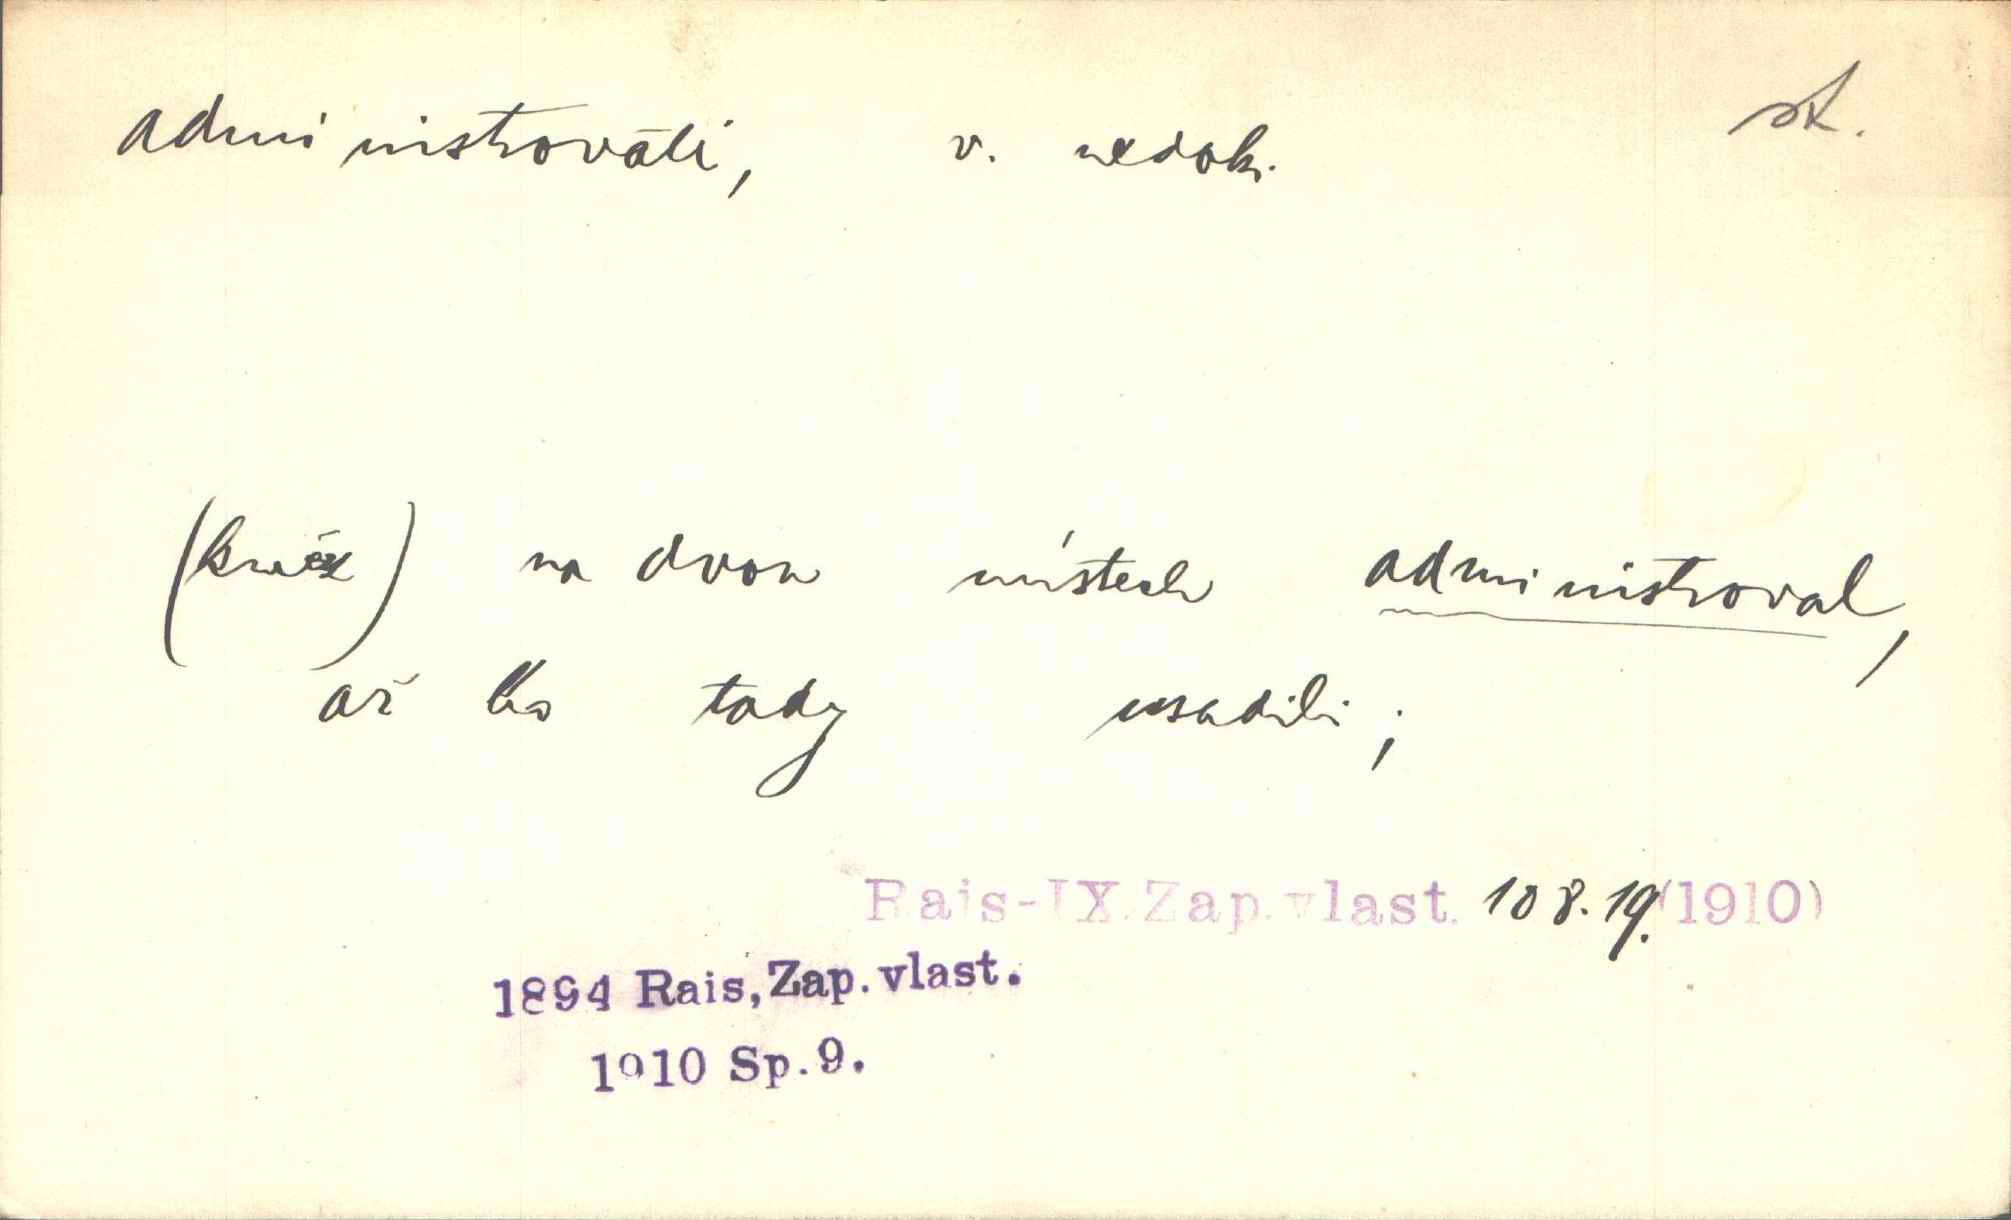 administrovati, v. nedok. st.
(kněz) na dvou místech administroval,
až ho tady usadili;
Rais-IX.Zap.vlast. 108.19.(1910)
1894 Rais, Zap. vlast.
1910 Sp.9.